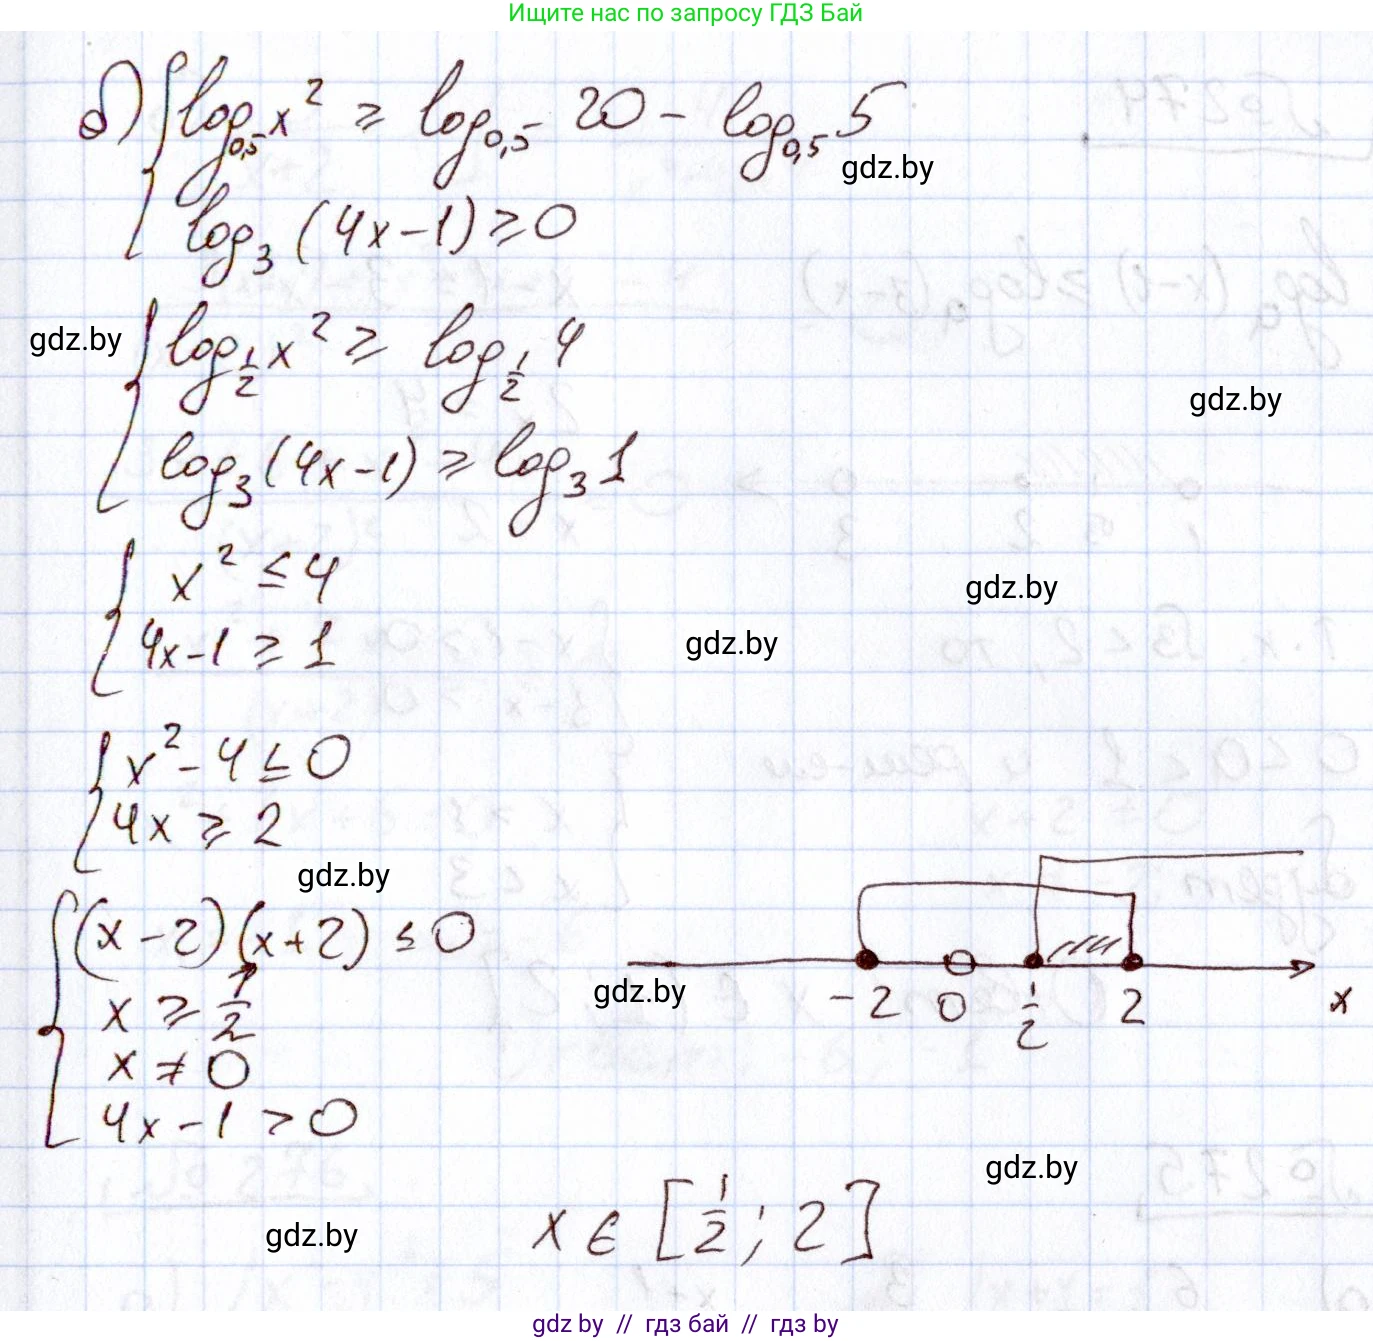 Ищите нас по запросу ГДЗ Бай
б) { log₀,₅ x² ≥ log₀,₅ 20 - log₀,₅ 5
gdz.by
log₃ (4x-1) ≥ 0
gdz.by
{ log_{1/2} x² ≥ log_{1/2} 4
gdz.by
log₃ (4x-1) ≥ log₃ 1
{ x² ≤ 4
gdz.by
4x-1 ≥ 1
gdz.by
{ x² - 4 ≤ 0
4x ≥ 2
gdz.by
{ (x-2)(x+2) ≤ 0
x ≥ 1/2
x ≠ 0
4x-1 > 0
gdz.by
-2 0 1/2 2 x
gdz.by
x ∈ [1/2; 2]
gdz.by
gdz by // гдз бай // гдз by